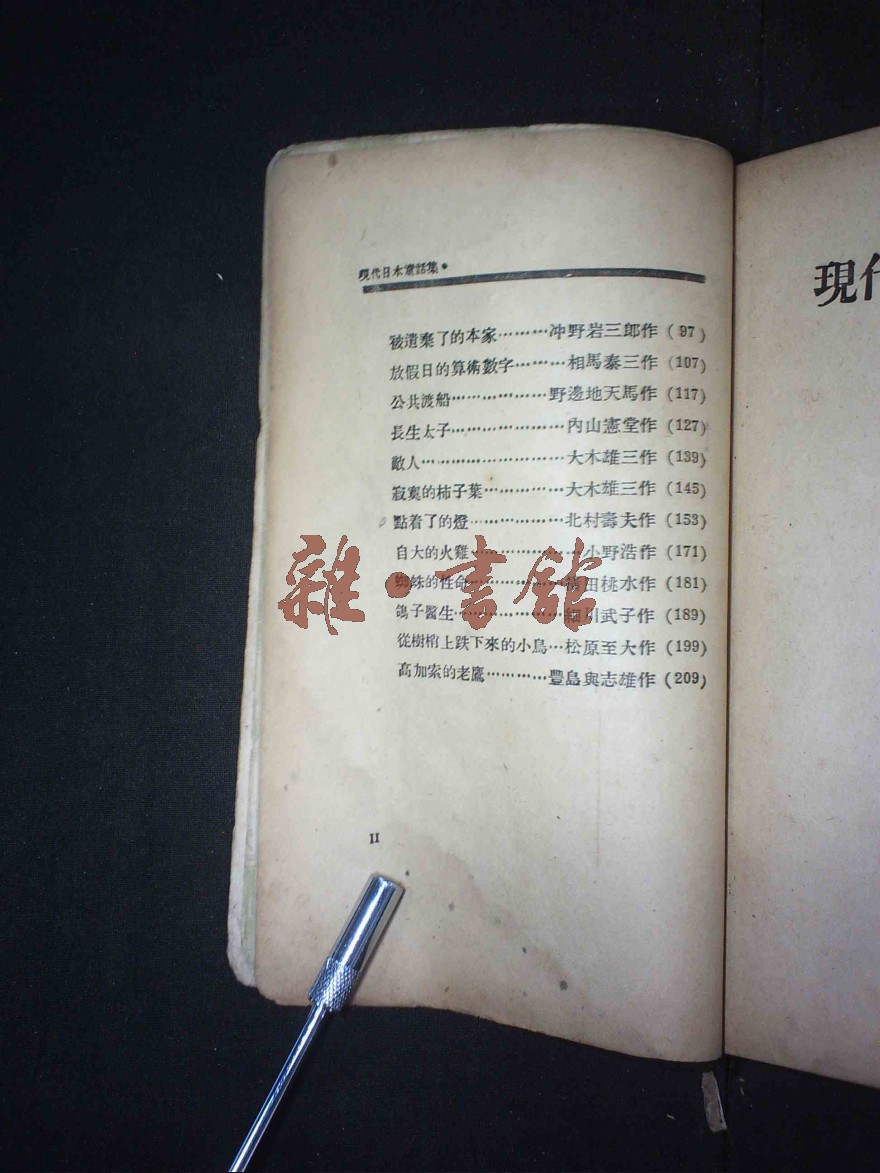 現代日本童話集•
被遺棄了的本家………冲野岩三郎作 (97)
放假日的算術數字………相馬泰三作 (107)
公共渡船………………野邊地天馬作 (117)
長生太子…………………內山憲堂作 (127)
敵人………………………大木雄三作 (139)
寂寞的柿子葉……………大木雄三作 (145)
點着了的燈………………北村壽夫作 (153)
自大的火雞…………………小野浩作 (171)
蜘蛛的性命………………田桃水作 (181)
鴿子醫生…………………細川武子作 (189)
從樹梢上跌下來的小鳥…松原至大作 (199)
高加索的老鷹…………豐島與志雄作 (209)
II
現代
雜•書館